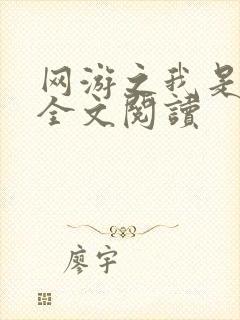 网游之我是
全文閱讀
廖宇